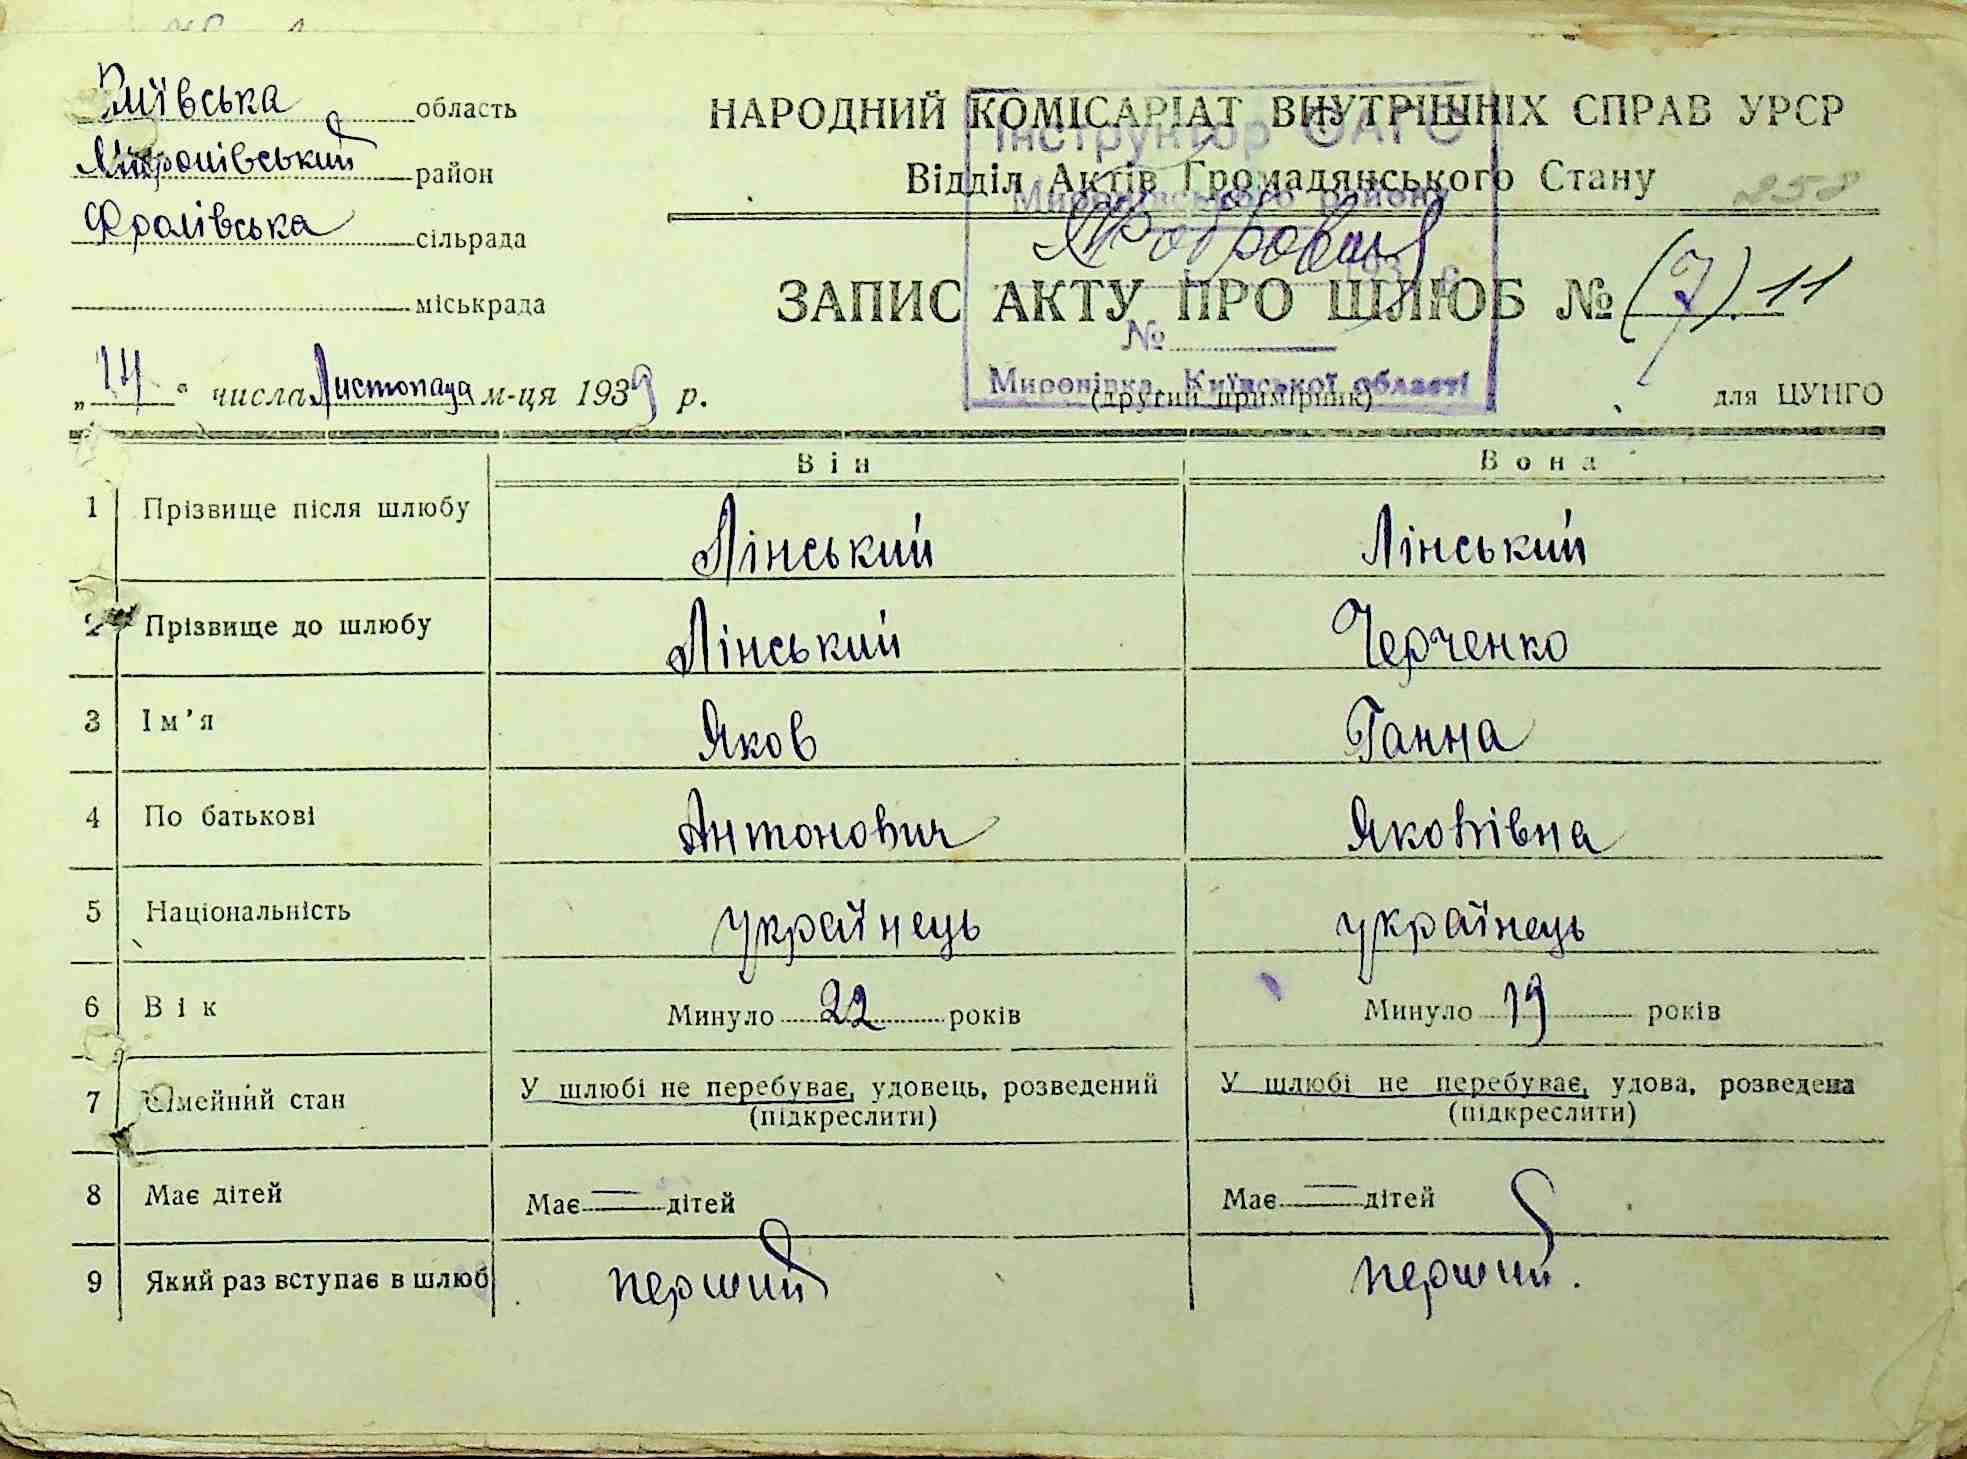 Київська область
Миронівський район
Фролівська сільрада
міськрада
НАРОДНИЙ КОМІСАРІАТ ВНУТРІШНІХ СПРАВ УРСР
Відділ Актів Громадянського Стану
258
Інструктор ОАГС
Миронівського району
193 р.
№
Миронівка, Київської області
ЗАПИС АКТУ ПРО ШЛЮБ № (7) 11
„14“ числа Листопада м-ця 1939 р.
(другий примірник)
для ЦУНГО
Він Вона
1 Прізвище після шлюбу Лінський Лінський
2 Прізвище до шлюбу Лінський Черченко
3 Ім'я Яков Ганна
4 По батькові Антонович Яковівна
5 Національність українець українець
6 Вік Минуло 22 років Минуло 19 років
7 Сімейний стан У шлюбі не перебуває, удовець, розведений У шлюбі не перебуває, удова, розведена
(підкреслити) (підкреслити)
8 Має дітей Має — дітей Має — дітей
9 Який раз вступає в шлюб перший перший.